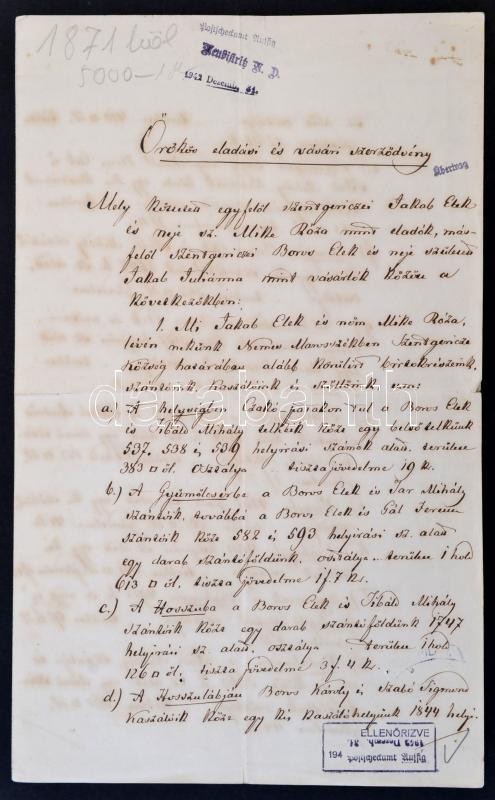 1871 ből
5000-
1942 Dezemb. 31.
Örökös eladási és vásári szerződvény
Übertrag
Mely köztetett egyfelől Szentgericzei Jakab Elek
és neje sz. Mike Róza mint eladók, más-
felől szentgericzei Boros Elek és neje született
Jakab Juliánna mint vásárlók között a
következőkben:
1. Mi Jakab Elek és nőm Mike Róza,
lévén nekünk Nemes Marosszékben Szentgericze
község határában alább körülírt birtokrészeink,
szántóink, kaszálóink és szőllőink u.m:
a.) A helységben Csakó patakon túl a Boros Elek
és Tibáld Mihály telkeik közt egy belső telkünk
537. 538 és 539 helyirási számok alatt. területe
383 □ öl. osztálya .. tiszta jövedelme 19 k.
b.) A Gyümölcsérbe a Boros Elek és Par Mihály
szántóik, továbbá a Boros Elek és Pál Ferencz
szántóik közt 582 és 593 helyirási sz. alatt
egy darab szántóföldünk. osztálya .. területe 1 hold
613 □ öl. tiszta jövedelme 1 f. 7 kr.
c.) A Hosszuba a Boros Elek és Tibáld Mihály
szántóik közt egy darab szántóföldünk 1747
helyirási sz. alatt, osztálya .. területe 1 hold
126 □ öl. tiszta jövedelme 3 f. 4 k.
d.) A Hosszulábján Boros Károly és Szabó Sigmond
kaszálóik közt egy kis kaszálóhelyünk 1844 helyi-
darabanth
ELLENŐRIZVE
1942 Dezemb. 31.
194